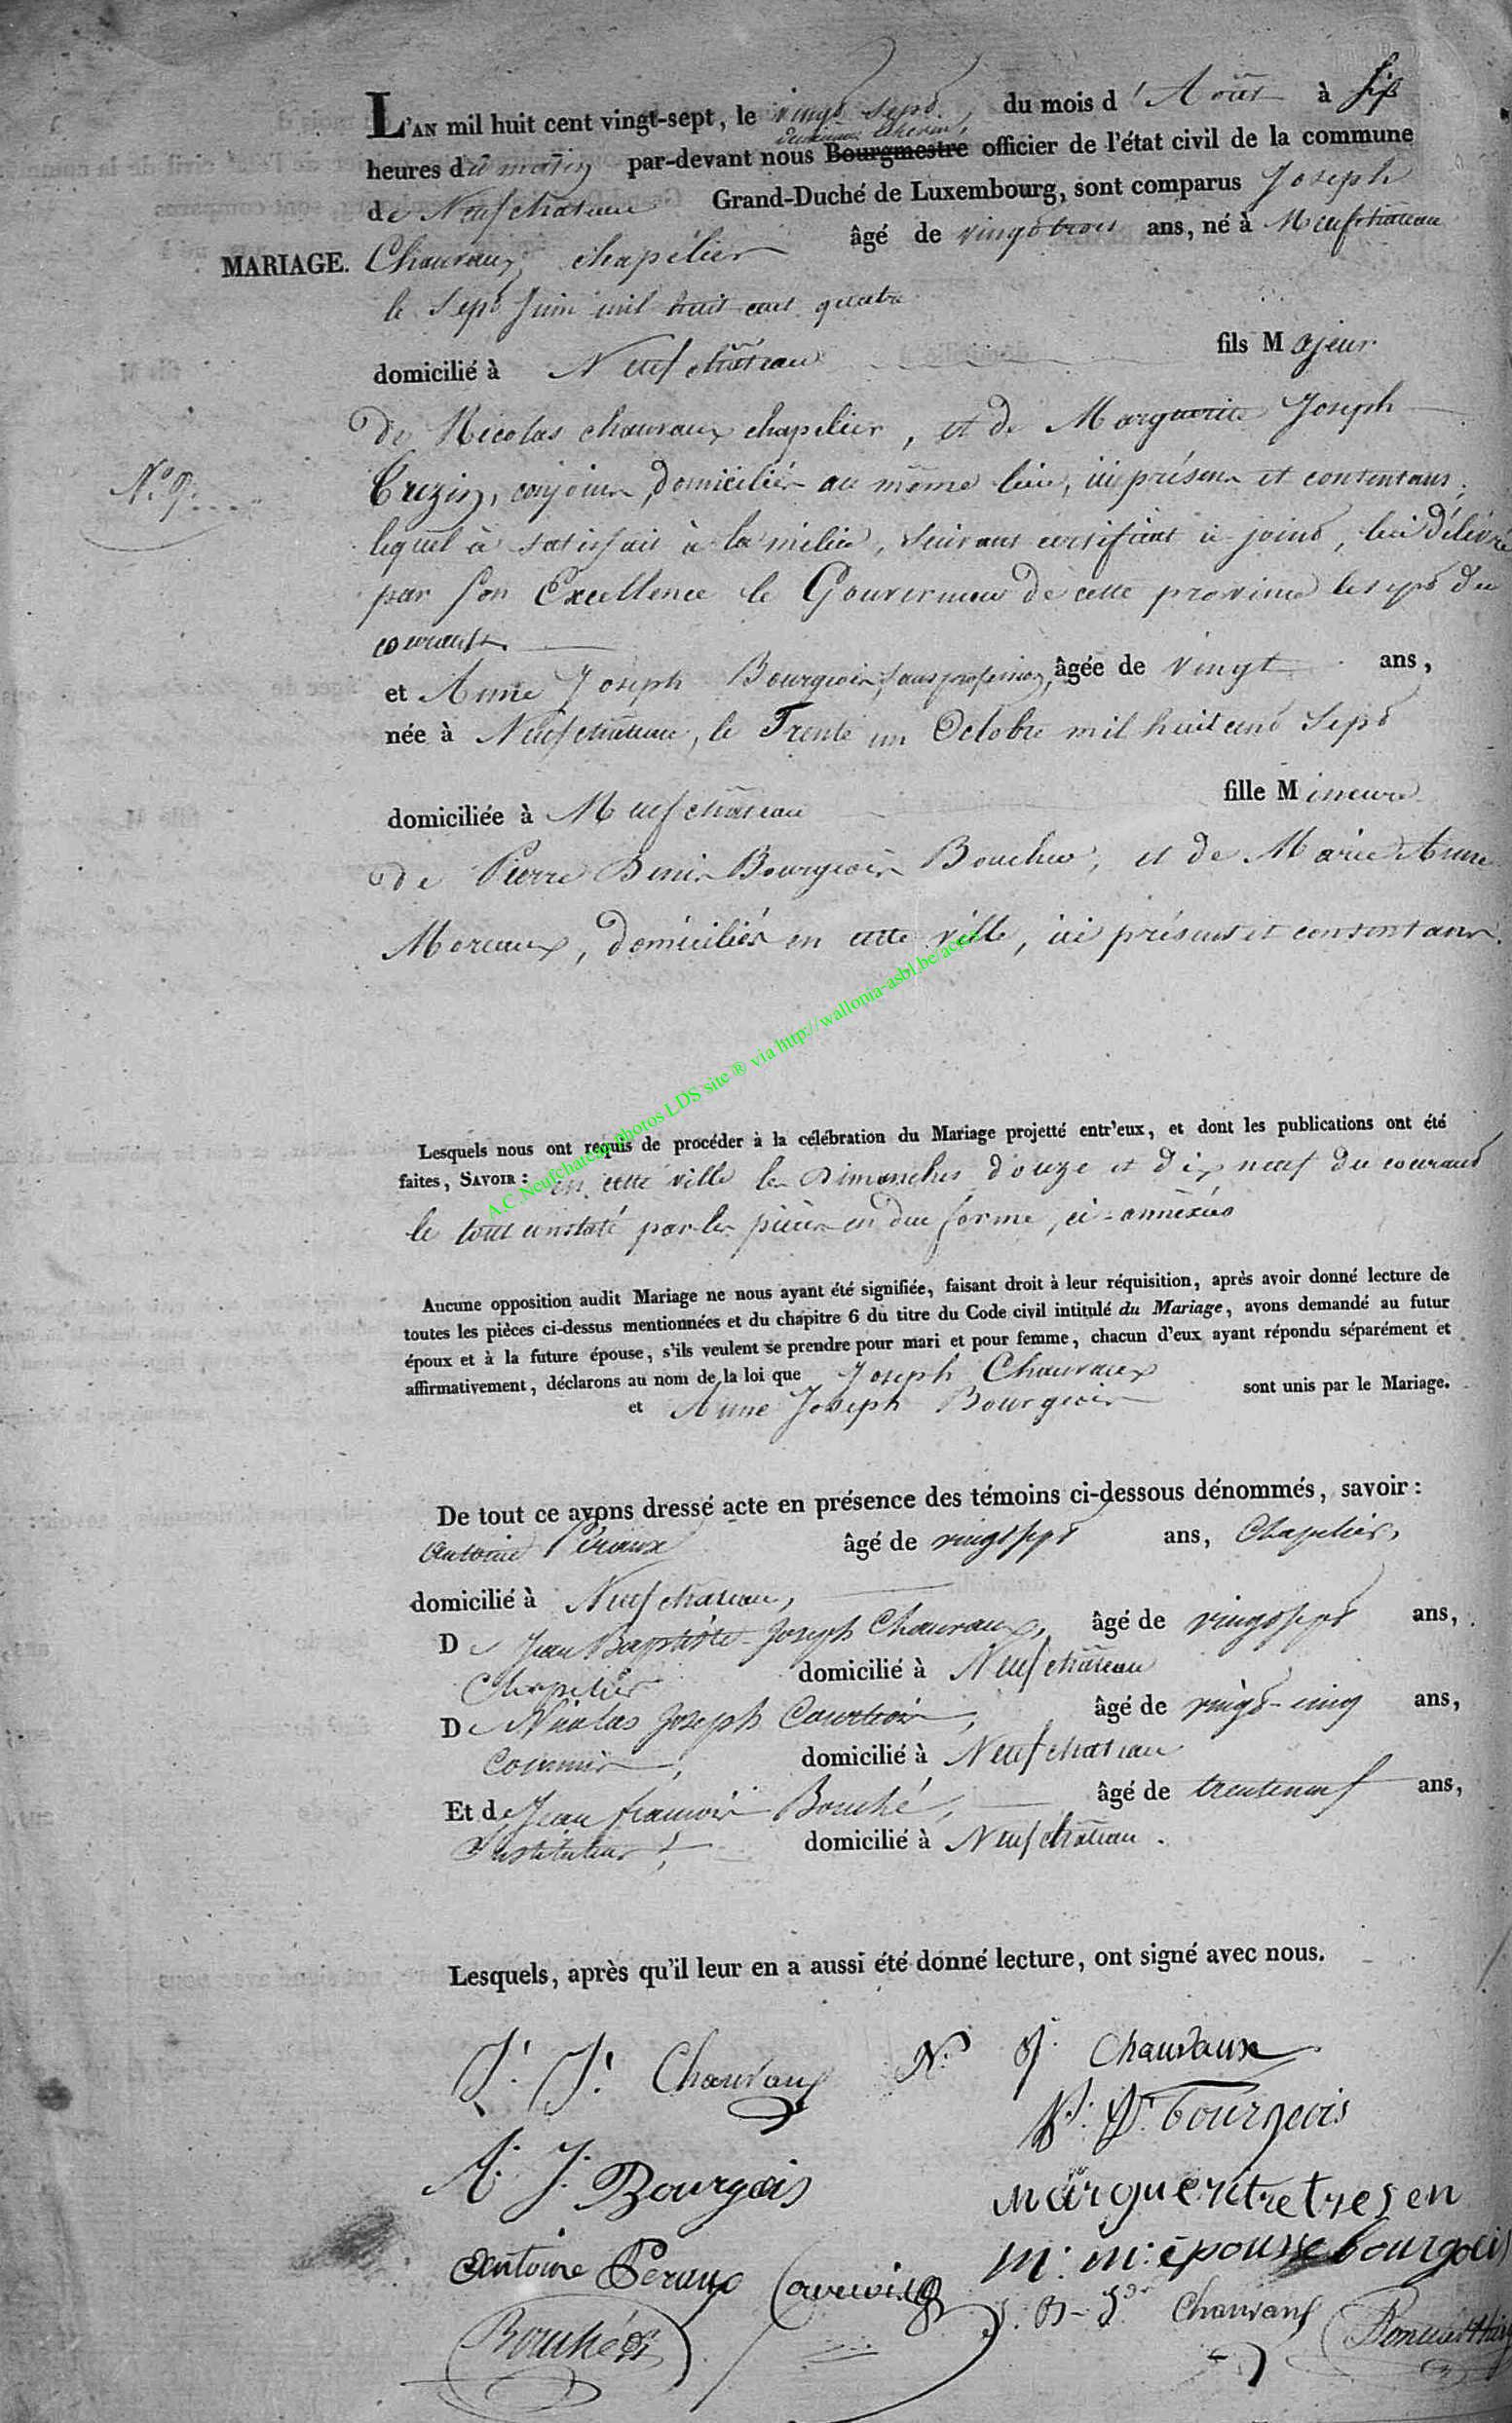 L'AN mil huit cent vingt-sept, le vingt sept du mois d'Août à six
deuxieme Echevin,
heures du matin par-devant nous Bourgmestre officier de l'état civil de la commune
de Neufchateau Grand-Duché de Luxembourg, sont comparus Joseph
MARIAGE. Chauvaux, chapélier âgé de vingt trois ans, né à Neufchâteau
le sept Juin mil huit cent quatre
domicilié à Neufchâteau fils Majeur
de Nicolas chauvaux chapelier, et de Marguerite Joseph
N.° 9.
conjoins domiciliés au même lieu, ici présens et consentans;
lequel à satisfait à la milice, suivant certificat ci-joint, lui délivré
par Son Excellence le Gouverneur de cette province le sept du
courant.
et Anne Joseph Bourgeois, sans profession, âgée de vingt ans,
née à Neufchâteau, le Trente un Octobre mil huit cent Sept
domiciliée à Neufchâteau fille Mineure
de Pierre Denis Bourgeois Boucher, et de Marie Anne
Moreaux, domiciliés en cette ville, ici présens et consentans.
A.C.Neufchateau photos LDS site ® via http://wallonia-asbl.be/actes
Lesquels nous ont requis de procéder à la célébration du Mariage projetté entr'eux, et dont les publications ont été
faites, SAVOIR : en cette ville les Dimanches douze et dix neuf du courant
le tout constaté par les pièces en due forme, ci-annéxées
Aucune opposition audit Mariage ne nous ayant été signifiée, faisant droit à leur réquisition, après avoir donné lecture de
toutes les pièces ci-dessus mentionnées et du chapitre 6 du titre du Code civil intitulé du Mariage, avons demandé au futur
époux et à la future épouse, s'ils veulent se prendre pour mari et pour femme, chacun d'eux ayant répondu séparément et
affirmativement, déclarons au nom de la loi que Joseph Chauvaux
et Anne Joseph Bourgeois sont unis par le Mariage.
De tout ce avons dressé acte en présence des témoins ci-dessous dénommés, savoir :
Antoine Péraux âgé de vingt sept ans, Chapelier,
domicilié à Neufchateau,
De Jean Baptiste Joseph Chauvaux, âgé de vingt sept ans,
Chapelier domicilié à Neufchâteau
De Nicolas Joseph Courtois, âgé de vingt-cinq ans,
Commis, domicilié à Neufchateau
Et de Jean françois Bouché, âgé de trente neuf ans,
Instituteur, domicilié à Neufchâteau.
Lesquels, après qu'il leur en a aussi été donné lecture, ont signé avec nous.
J. J. Chauvaux N. J. Chauvaux
P. D. bourgeois
A. J. Bourgois
Marguerite tresen
Antoine Peraux
m: m: epousse bourgois
J. B- Chauvaux
Bouché